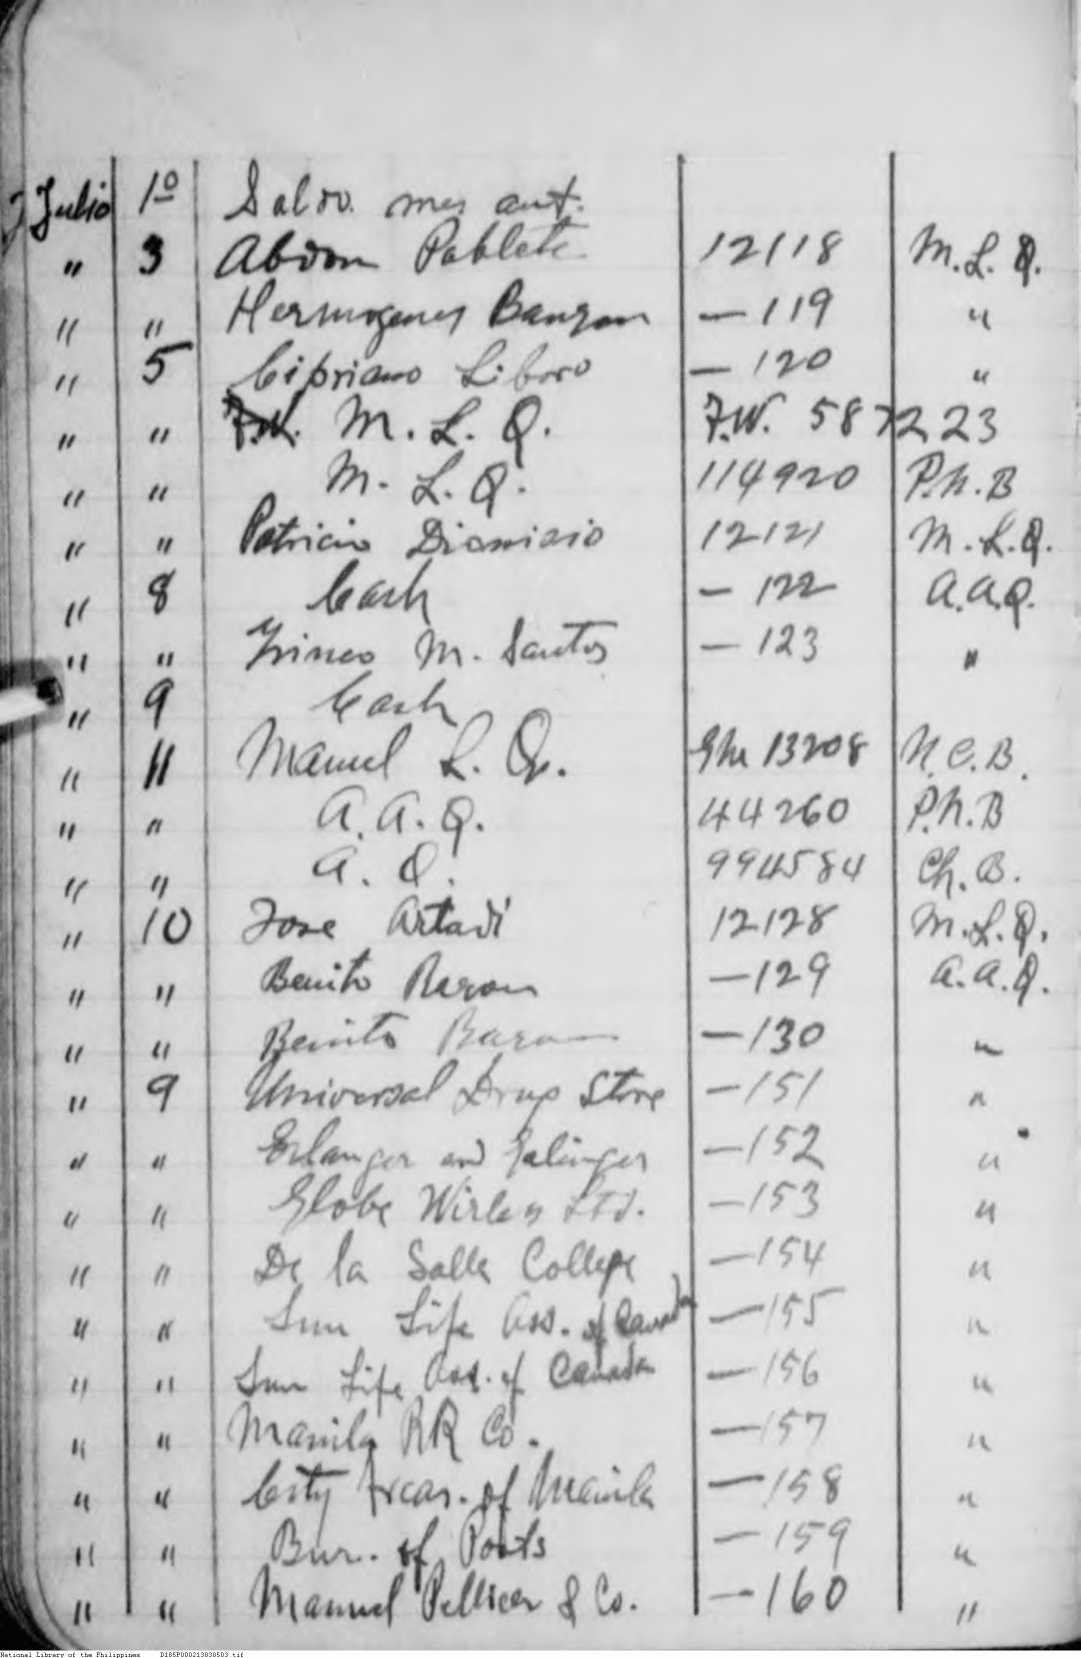 Julio 1º Saldo mes ant.
" 3 Abdon Poblete 12118 M.L.Q.
" " Hermogenes Banzon — 119 "
" 5 Cipriano Liboro — 120 "
" " M.L.Q. F.W. 587223
" " M.L.Q. 114920 P.N.B
" " Patricio Dionisio 12121 M.L.Q.
" 8 Cash — 122 A.A.Q.
" " Irineo M. Santos — 123 "
" 9 Cash
" 11 Manuel L. Q. 13208 N.C.B.
" " A.A.Q. 44260 P.N.B
" " A.Q. 994584 Ch.B.
" 10 Jose Artadi 12128 M.L.Q.
" " Benito Razon — 129 A.A.Q.
" " Benito Razon — 130 "
" 9 Universal Drug Store — 151 "
" " Erlanger and Galinger — 152 "
" " Globe Wirless Ltd. — 153 "
" " De la Salle College — 154 "
" " Sun Life Ass. of Canada — 155 "
" " Sun Life Ass. of Canada — 156 "
" " Manila RR Co. — 157 "
" " City Treas. of Manila — 158 "
" " Bur. of Posts — 159 "
" " Manuel Pellicer & Co. — 160 "
National Library of the Philippines D185P000213830503.tif